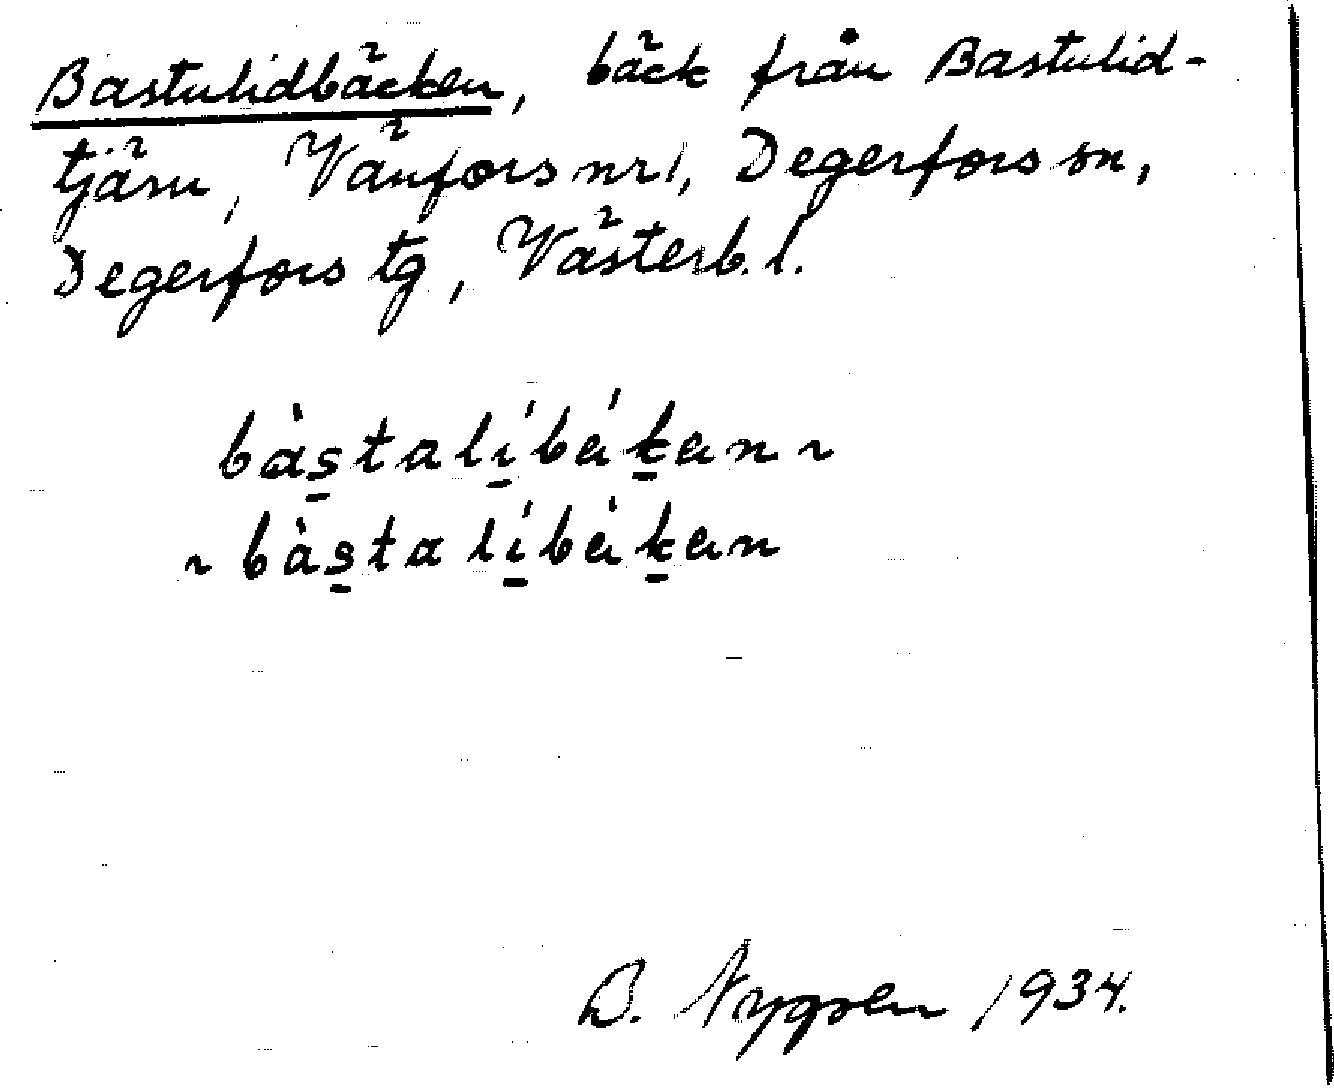 Bastulidbäcken, bäck från Bastulid-
tjärn, Vänfors nr 1, Degerfors sn,
Degerfors tg, Västerb. l.
bàs̱talí̱báḵan ~
~ bàs̱talí̱bàḵan
B. Nygren 1934.